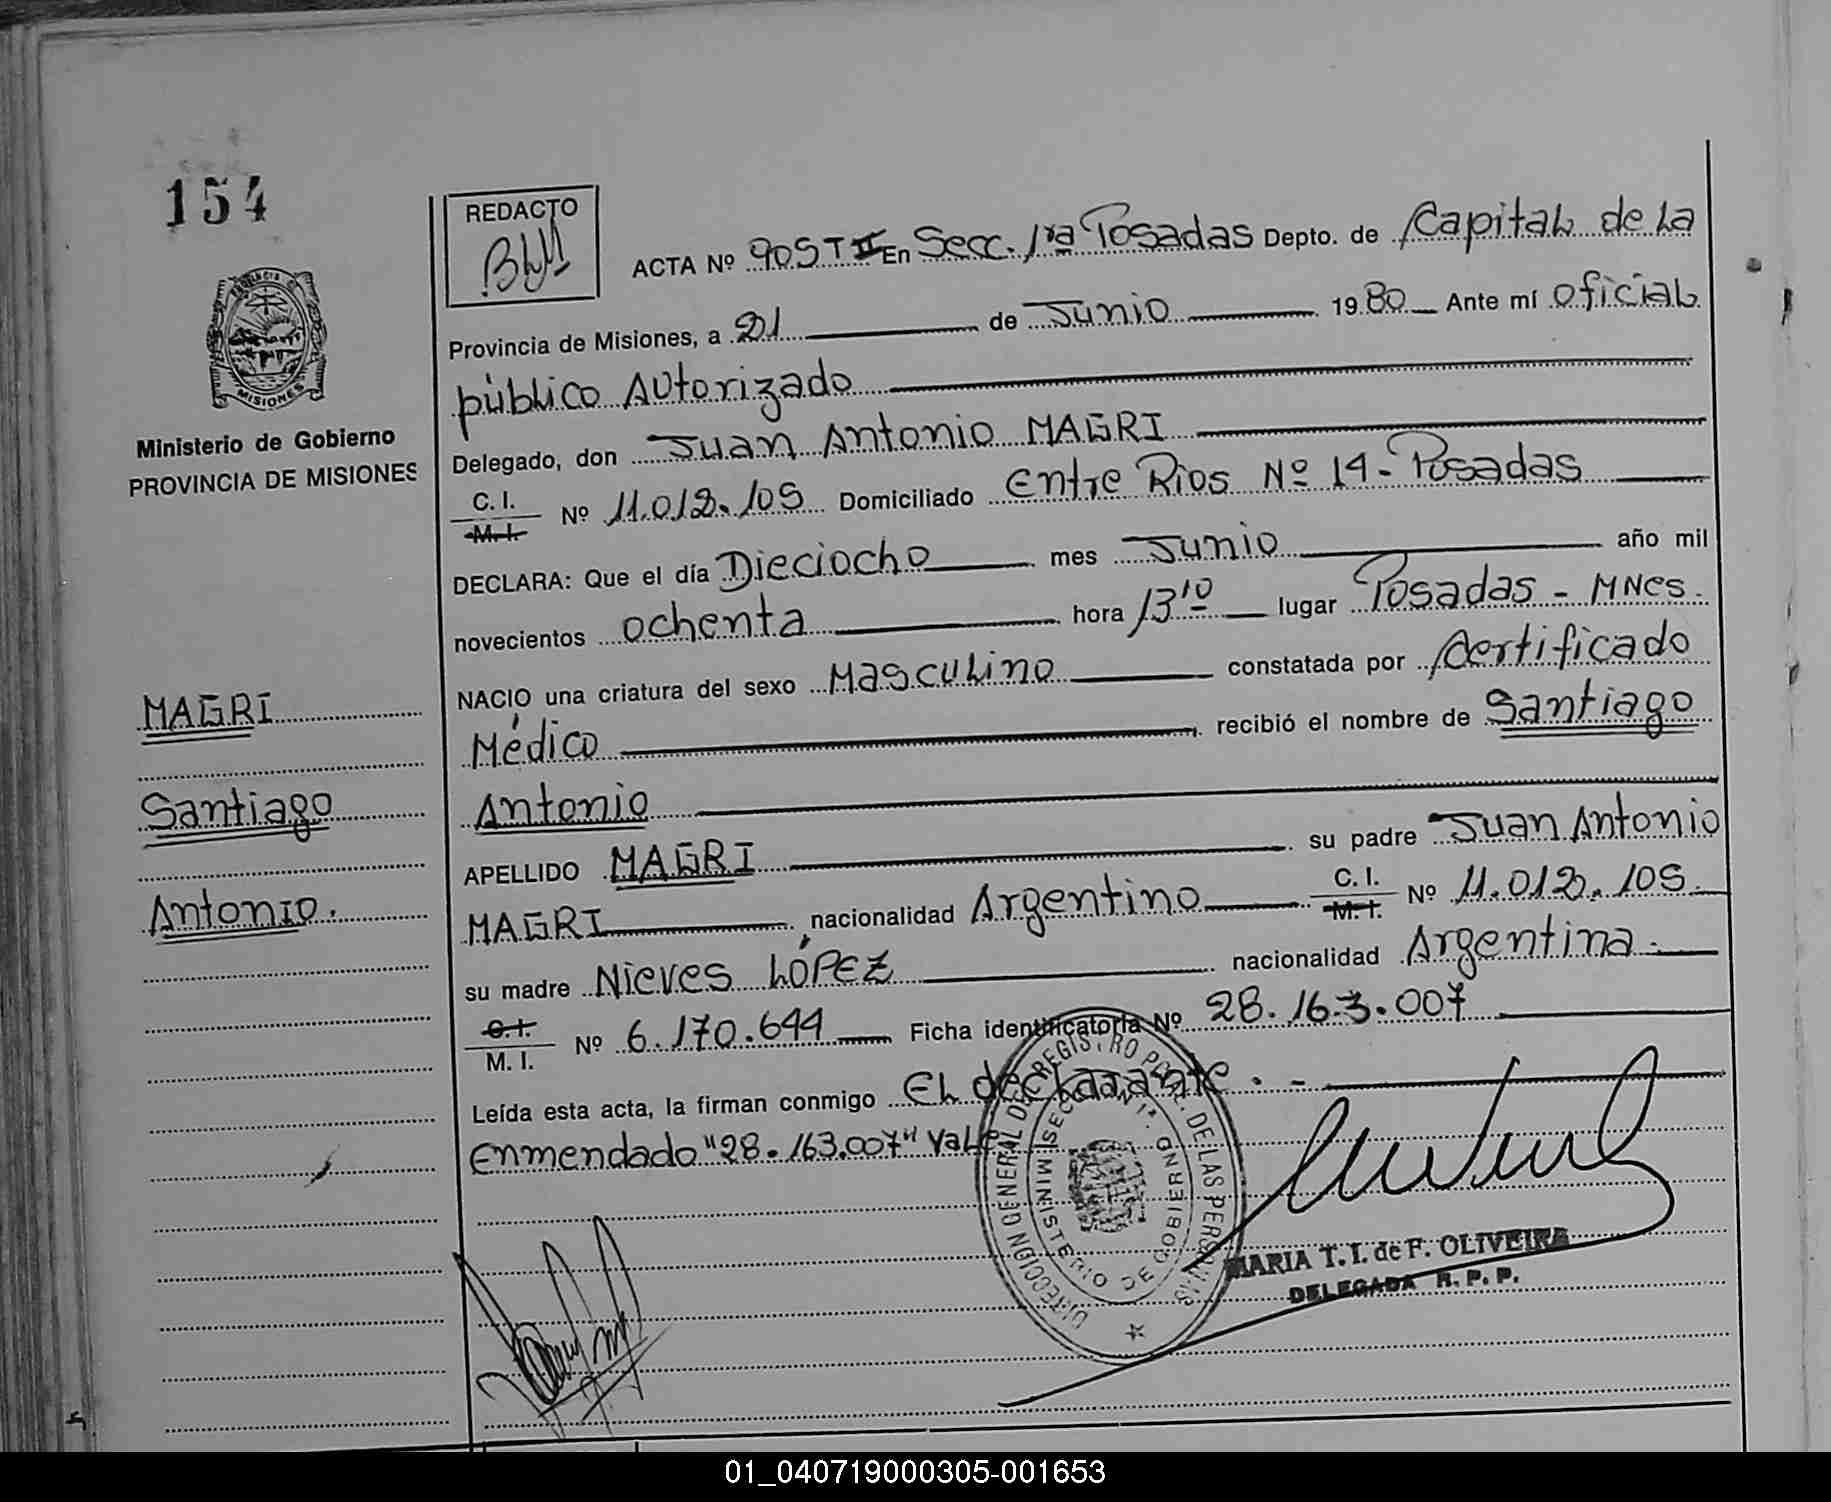 154
REDACTO
ACTA Nº 905 T II En Secc. 1ra Posadas Depto. de Capital de la
Provincia de Misiones, a 21 de Junio 1980 Ante mí oficial
público Autorizado
Delegado, don Juan Antonio MAGRI
C. I.
M. I.
Nº 11.012.105 Domiciliado Entre Rios Nº 14 - Posadas
DECLARA: Que el día Dieciocho mes Junio año mil
novecientos ochenta hora 13 10 lugar Posadas - MNES.
NACIO una criatura del sexo Masculino constatada por Certificado
Médico recibió el nombre de Santiago
Antonio
APELLIDO MAGRI su padre Juan Antonio
MAGRI nacionalidad Argentino C. I. M. I. Nº 11.012.105.
su madre Nieves LÓPEZ nacionalidad Argentina.
C. I.
M. I.
Nº 6.170.644 Ficha identificatoria Nº 28.163.007
Leída esta acta, la firman conmigo El declarante. -
Enmendado "28.163.007" Vale
PROVINCIA DE
MISIONES
Ministerio de Gobierno
PROVINCIA DE MISIONES
MAGRI
Santiago
Antonio.
DIRECCION GENERAL DEL REGISTRO PCIAL. DE LAS PERSONAS
MINISTERIO DE GOBIERNO
SECCION 1ª.
MARIA T. I. de F. OLIVEIRA
DELEGADA R. P. P.
01_040719000305-001653